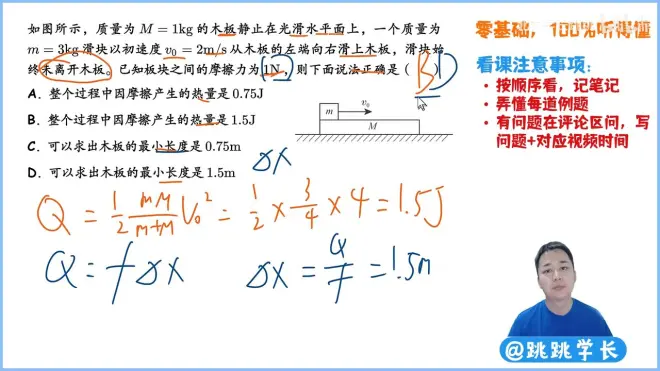 如图所示，质量为 M = 1kg 的木板静止在光滑水平面上，一个质量为
m = 3kg 滑块以初速度 v₀ = 2m/s 从木板的左端向右滑上木板，滑块始
终未离开木板。已知板块之间的摩擦力为 1N，则下面说法正确是（ BD ）
A. 整个过程中因摩擦产生的热量是 0.75J
B. 整个过程中因摩擦产生的热量是 1.5J
C. 可以求出木板的最小长度是 0.75m
D. 可以求出木板的最小长度是 1.5m
m v₀
M
ΔX
Q = 1/2 mM/(m+M) V₀² = 1/2 × 3/4 × 4 = 1.5J
Q = f ΔX ΔX = Q/f = 1.5m
零基础，100%听得懂
看课注意事项：
• 按顺序看，记笔记
• 弄懂每道例题
• 有问题在评论区问，写
问题+对应视频时间
@跳跳学长